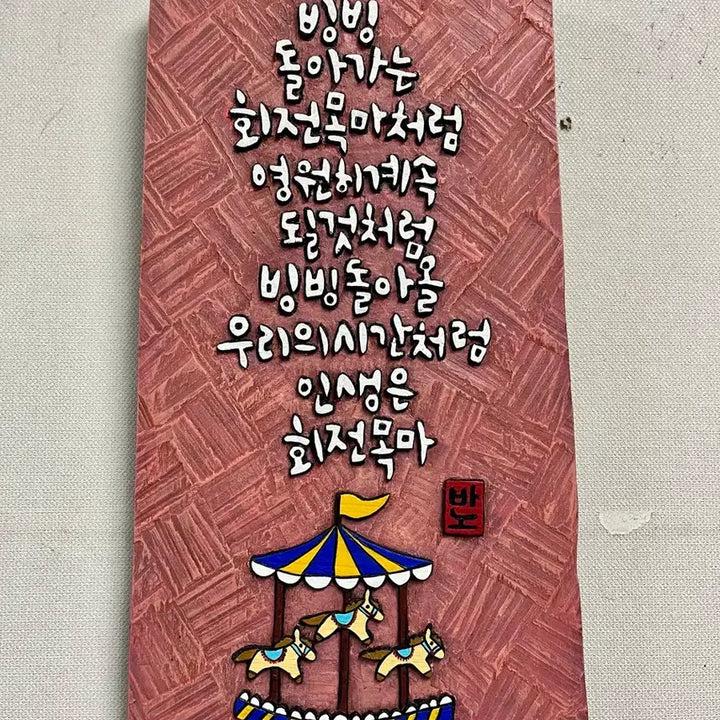 빙빙
돌아가는
회전목마처럼
영원히계속
될것처럼
빙빙돌아올
우리의시간처럼
인생은
회전목마
바노